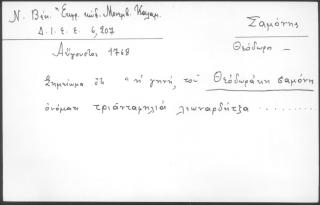 Ν. Βέη "Επιγρ. κώδ. Μεσημβ. Καλαμ.
Δ.Ι.Ε.Ε. 6, 207
Σαμόνης
Θεόδωρη -
Αὔγουστος 1768
Σημείωμα ὅτι "ἡ γηνή, τοῦ Θεόδωράκη σαμόνη
ὀνόματι τριάνταφηλιά λεωναρδήτζα ..........